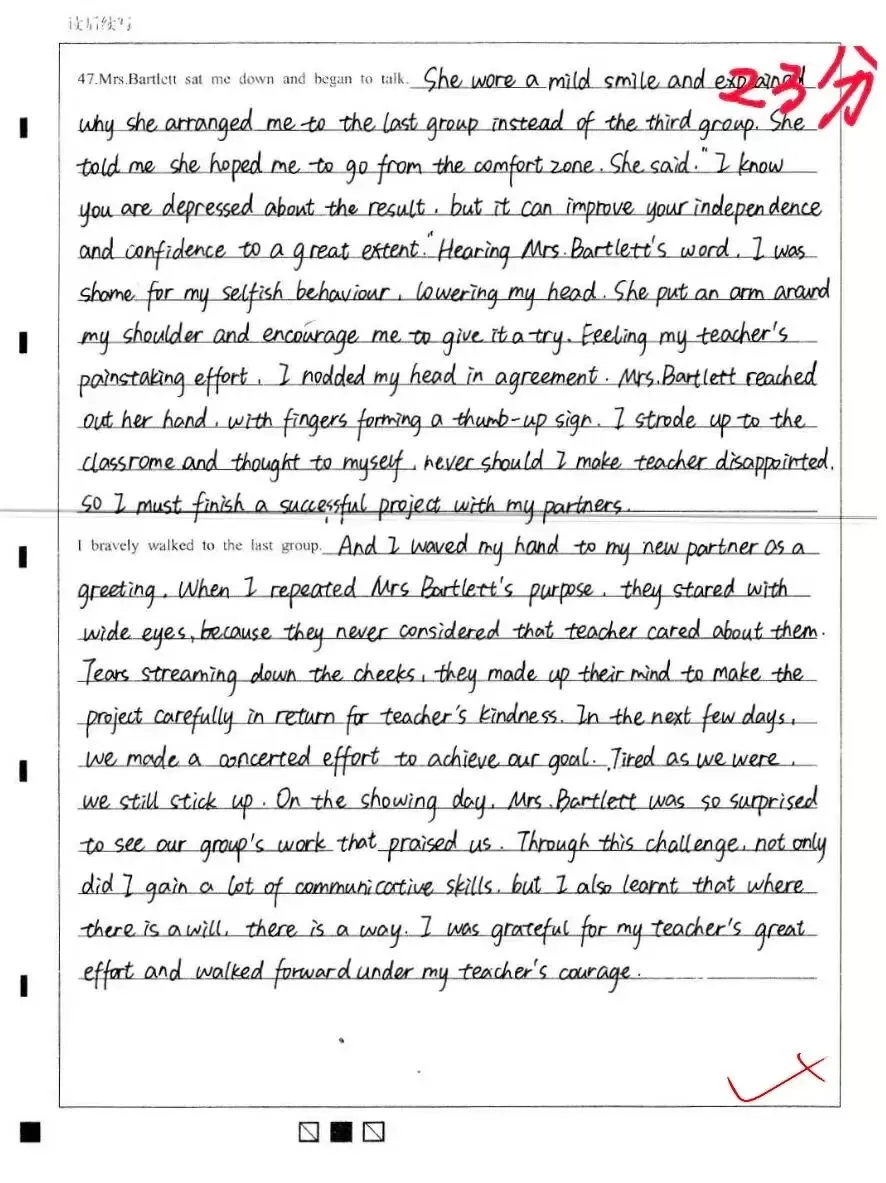 读后续写
47.Mrs.Bartlett sat me down and began to talk. She wore a mild smile and explained
23分
why she arranged me to the last group instead of the third group. She
told me she hoped me to go from the comfort zone. She said. "I know
you are depressed about the result, but it can improve your independence
and confidence to a great extent." Hearing Mrs.Bartlett's word, I was
shame for my selfish behaviour, lowering my head. She put an arm around
my shoulder and encourage me to give it a try. Feeling my teacher's
painstaking effort, I nodded my head in agreement. Mrs.Bartlett reached
out her hand, with fingers forming a thumb-up sign. I strode up to the
classrome and thought to myself, never should I make teacher disappointed,
so I must finish a successful project with my partners.
I bravely walked to the last group. And I waved my hand to my new partner as a
greeting. When I repeated Mrs Bartlett's purpose, they stared with
wide eyes, because they never considered that teacher cared about them.
Tears streaming down the cheeks, they made up their mind to make the
project carefully in return for teacher's kindness. In the next few days,
we made a concerted effort to achieve our goal. Tired as we were,
we still stick up. On the showing day, Mrs.Bartlett was so surprised
to see our group's work that praised us. Through this challenge, not only
did I gain a lot of communicative skills, but I also learnt that where
there is a will, there is a way. I was grateful for my teacher's great
effort and walked forward under my teacher's courage.